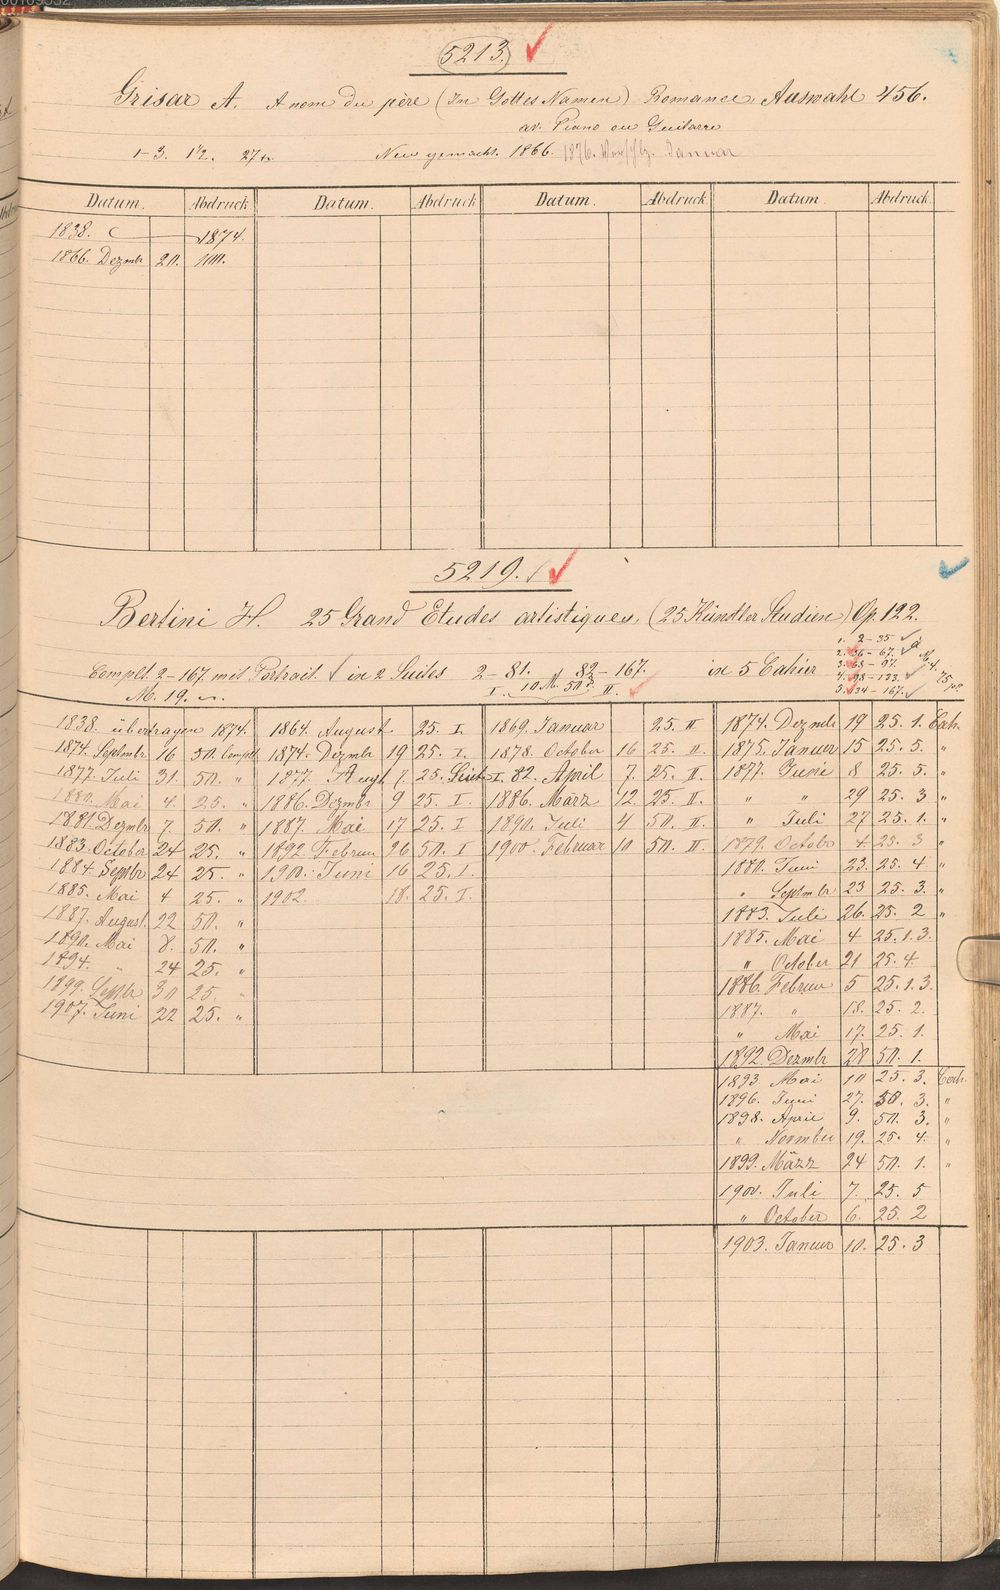 5213.
Grisar A. A nom du père (In Gottes Namen) Romance. Auswahl 456.
av. Piano ou Guitarre
1-3. 1½. 27 Neu gemacht. 1866. 1876. Januar
Datum. Abdruck Datum. Abdruck Datum. Abdruck Datum Abdruck
1838. 1874.
1866. Dezmbr 20. 100.
5219.
Bertini H. 25 Grand Etudes artistiques, (25 Künstler Studien) Op. 122.
1. 2-35
2. 36-67.
3. 68-97.
4. 98-133.
5. 134-167.
à M. 4. 75 pf.
Complt. 2-167. mit Portrait. in 2 Suites 2-81. 82-167. in 5 Cahier
M. 19. I. 10 M. 50 II.
1838 übertragen 1874. 1864. August 25. I 1869. Januar 25. II 1874. Dezmbr 19 25. 1. Cah.
1874. Septmbr 16 50. Complt 1874. Dezmbr 19 25. I. 1878. October 16 25. II. 1875. Januar 15 25. 5. "
1877. Juli 31. 50. " 1877. Augt 1. 25. Suit I. 82. April 7. 25. II 1877. Juni 8 25. 5. "
1880. Mai 4. 25. " 1886. Dezmbr 9 25. I. 1886. März 12 25. II. " " 29 25. 3 "
1881. Dezmbr 7. 50. " 1887. Mai 17 25. I 1890. Juli 4 50. II. " Juli 27 25. 1. "
1883. October 24 25. " 1892. Februar 26 50. I 1900. Februar 10 50. II. 1879. Octobr 4 25. 3 "
1884. Septbr 24 25. " 1900. Juni 16 25. I. 1880. Juni 23. 25. 4 "
1885. Mai 4 25. " 1902. 18. 25. I. " Septmbr 23 25. 3. "
1887. August. 22 50. " 1883. Juli 26. 25. 2 "
1890. Mai 8. 50. " 1885. Mai 4 25. 1. 3.
1894. " 24 25. " " October 21 25. 4.
1899. Septbr 30 25. " 1886. Februar 5 25. 1. 3.
1907. Juni 22 25. " 1887. " 18. 25. 2.
" Mai 17. 25. 1.
1892 Dezmbr 28 50. 1.
1893 Mai 10 25. 3. Cah.
1896. Juni 27. 50. 3. "
1898. April 9. 50. 3. "
" Novmber 19. 25. 4. "
1899. März 24 50. 1. "
1900. Juli 7. 25. 5
" October 6. 25. 2
1903. Januar 10. 25. 3